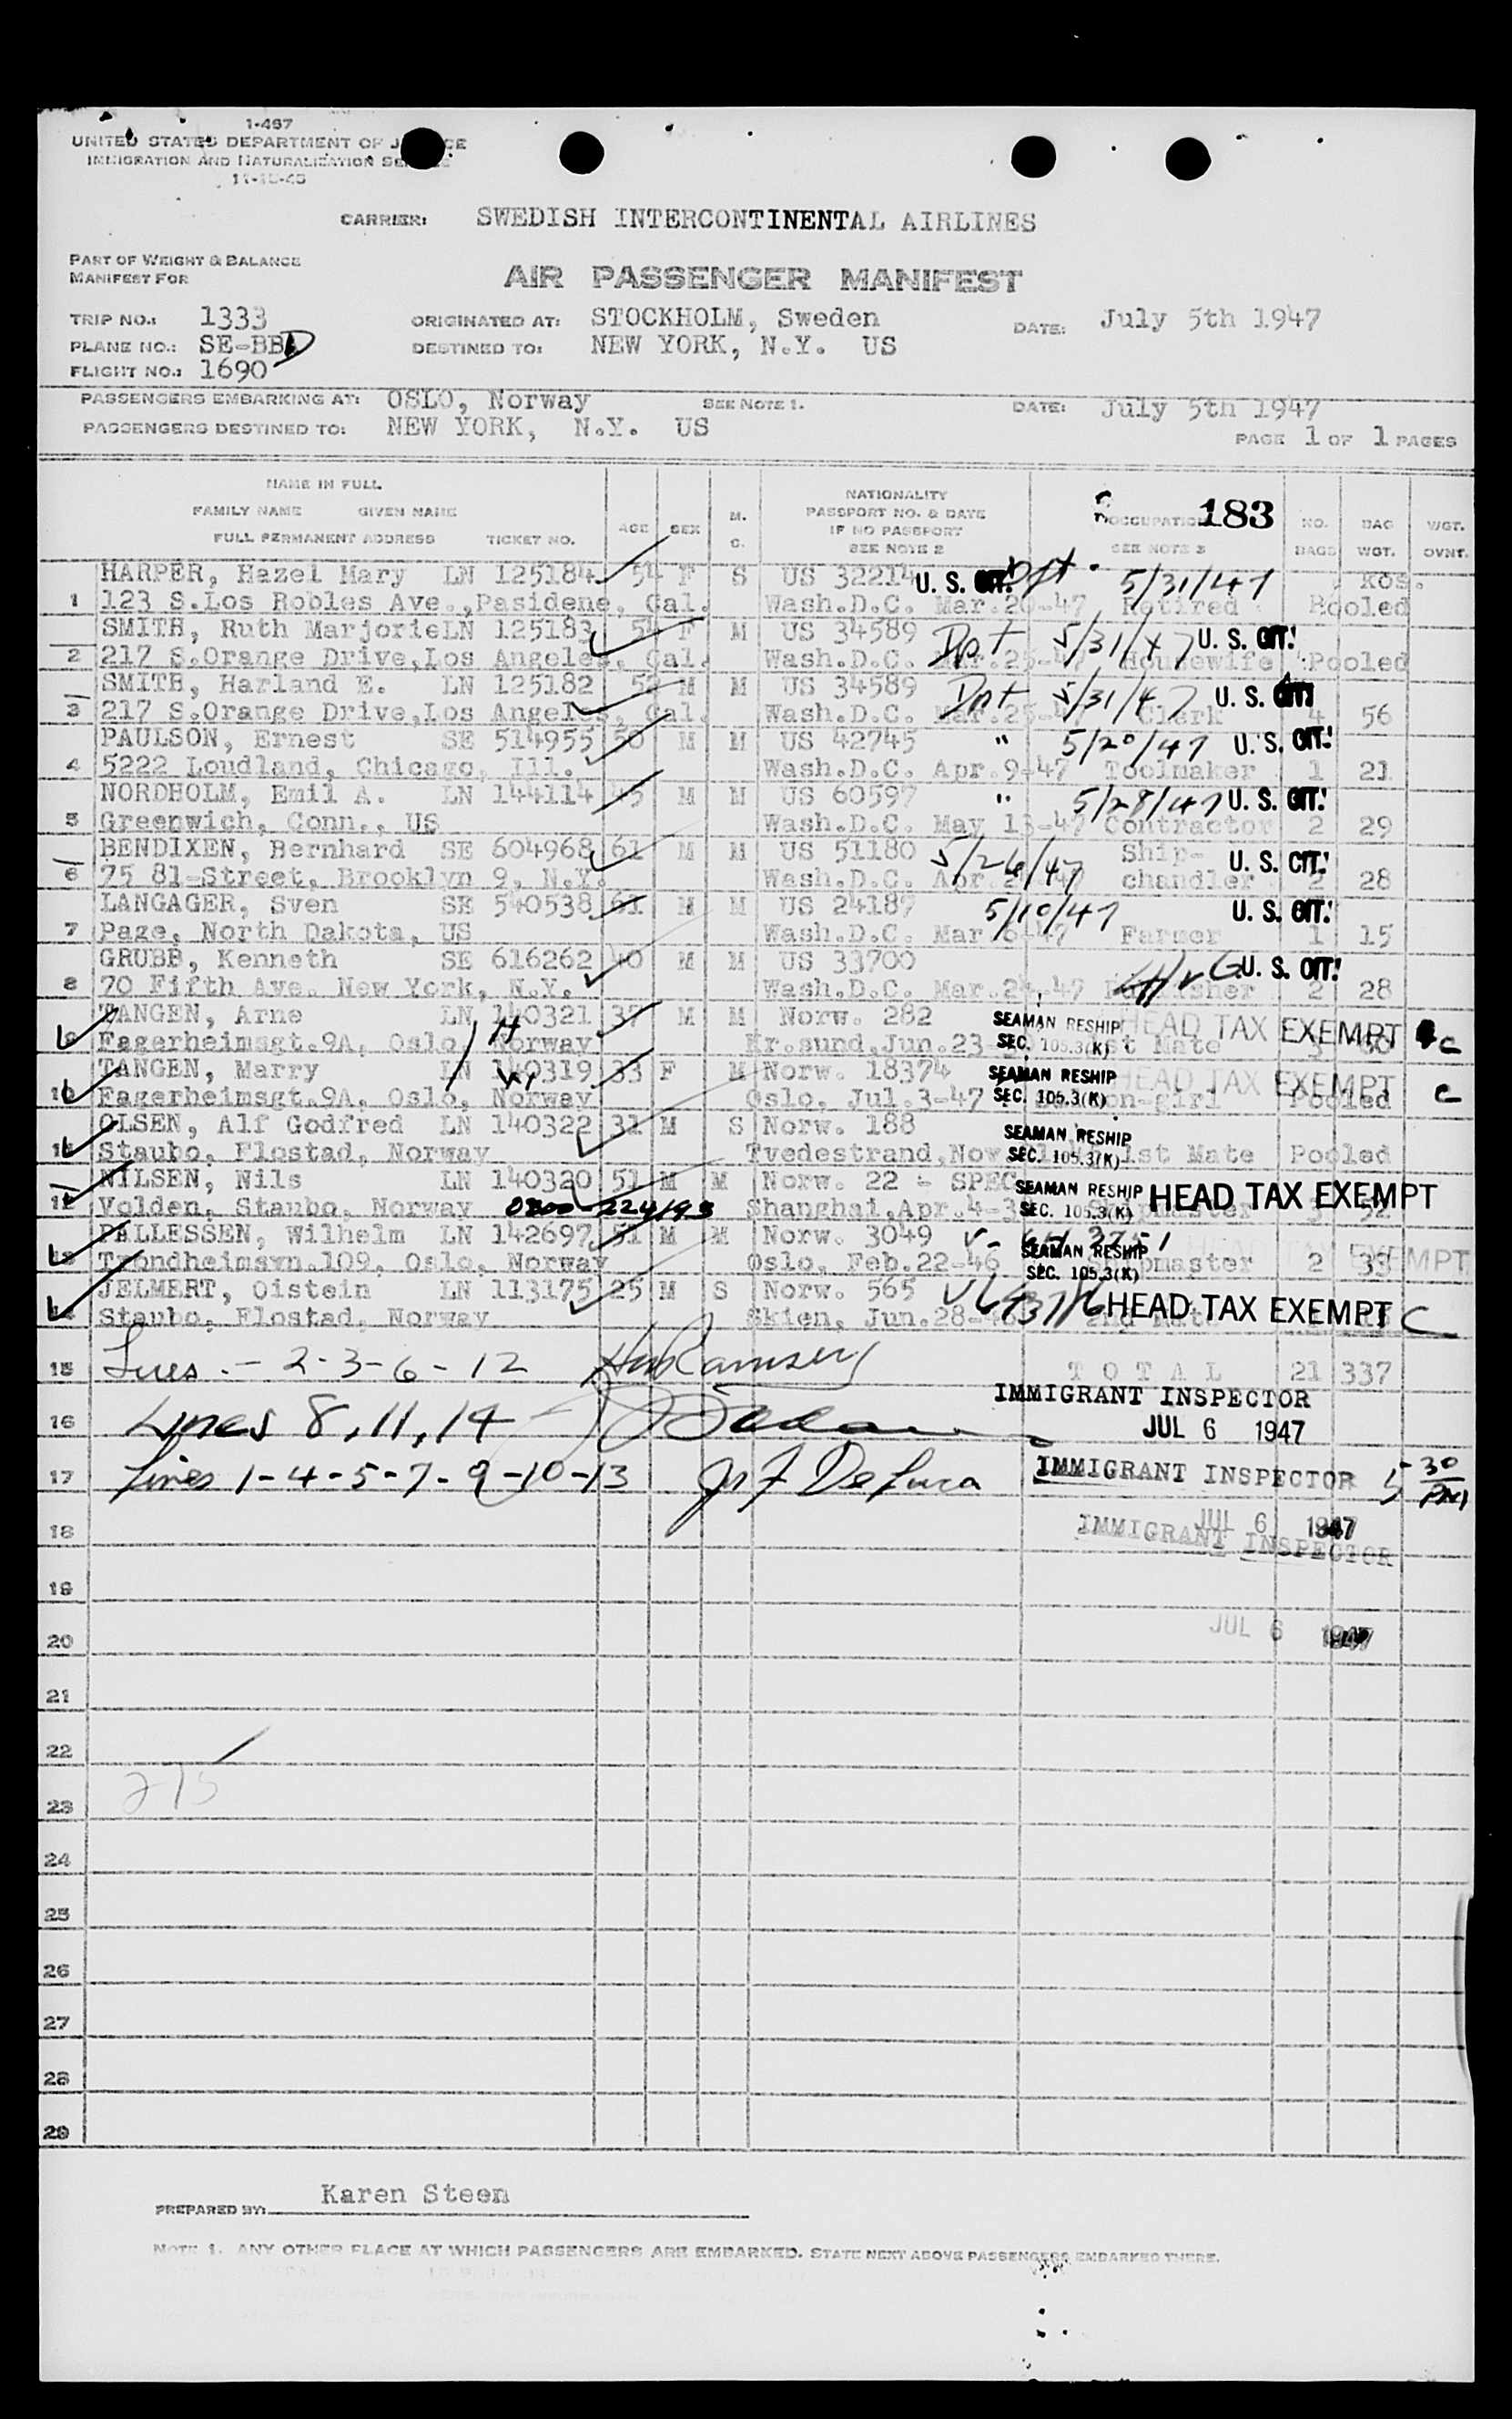 1-467
UNITED STATES DEPARTMENT OF
IMMIGRATION AND NATURALIZATION
CARRIER: SWEDISH INTERCONTINENTAL AIRLINES
PART OF WEIGHT & BALANCE
MANIFEST FOR
AIR PASSENGER MANIFEST
TRIP NO.: 1333 ORIGINATED AT: STOCKHOLM, Sweden DATE: July 5th 1947
PLANE NO.: SE-BBD DESTINED TO: NEW YORK, N.Y. US
FLIGHT NO.: 1690
PASSENGERS EMBARKING AT: OSLO, Norway SEE NOTE 1. DATE: July 5th 1947
PASSENGERS DESTINED TO: NEW YORK, N.Y. US
PAGE 1 OF 1 PAGES
NAME IN FULL
FAMILY NAME GIVEN NAME
FULL PERMANENT ADDRESS TICKET NO. AGE SEX M. S. NATIONALITY PASSPORT NO. & DATE IF NO PASSPORT SEE NOTE 2 OCCUPATION 183 SEE NOTE 3 NO. BAGS BAG WGT. WGT. OVNT.
HARPER, Hazel Mary LN 125184 54 F S US 32214 U. S. CIT. Dpt. 5/31/47 Kos.
1 123 S.Los Robles Ave.,Pasidene, Cal. Wash.D.C. Mar. -47 Retired Pooled
SMITH, Ruth MarjorieLN 125183 F M US 34589 Dpt 5/31/47 U. S. CIT.
2 217 S.Orange Drive,Los Angeles, Cal. Wash.D.C. Mar.25-47 Housewife Pooled
SMITH, Harland E. LN 125182 M M US 34589 Dpt 5/31/47 U. S. CIT.
3 217 S.Orange Drive,Los Angeles, Cal. Wash.D.C. Mar.25-47 Clerk 4 56
PAULSON, Ernest SE 514955 50 M M US 42745 " 5/20/47 U. S. CIT.
4 5222 Loudland, Chicago, Ill. Wash.D.C. Apr.9-47 Toolmaker 1 21
NORDHOLM, Emil A. LN 144114 45 M M US 60597 " 5/28/47 U. S. CIT.
5 Greenwich, Conn., US Wash.D.C. May 13-47 Contractor 2 29
BENDIXEN, Bernhard SE 604968 61 M M US 51180 5/26/47 Ship- U. S. CIT.
6 75 81-Street, Brooklyn 9, N.Y. Wash.D.C. Apr. chandler 2 28
LANGAGER, Sven SE 540538 61 M M US 24187 5/10/47 U. S. CIT.
7 Paze, North Dakota, US Wash.D.C. Mar.6-47 Farmer 1 15
GRUBB, Kenneth SE 616262 40 M M US 33700 U. S. CIT.
8 70 Fifth Ave. New York, N.Y. Wash.D.C. Mar.24-47 Publisher 2 28
TANGEN, Arne LN 140321 37 M M Norw. 282 SEAMAN RESHIP HEAD TAX EXEMPT c
9 Fagerheimsgt.9A, Oslo, Norway Kr.sund,Jun.23 SEC. 105.3(K) 1st Mate
TANGEN, Marry LN 140319 33 F M Norw. 18374 SEAMAN RESHIP HEAD TAX EXEMPT c
10 Fagerheimsgt.9A, Oslo, Norway Oslo, Jul.3-47 SEC. 105.3(K) Pooled
OLSEN, Alf Godfred LN 140322 31 M S Norw. 188 SEAMAN RESHIP
11 Staubo, Flostad, Norway Tvedestrand,Nov SEC. 105.3(K) 1st Mate Pooled
NILSEN, Nils LN 140320 51 M M Norw. 22 - SPEC SEAMAN RESHIP HEAD TAX EXEMPT
12 Volden, Staubo, Norway Shanghai,Apr.4 SEC. 105.3(K)
PALLESSEN, Wilhelm LN 142697 51 M M Norw. 3049 SEAMAN RESHIP EXEMPT
13 Trondheimsvn.109, Oslo, Norway Oslo, Feb.22-46 SEC. 105.3(K) Shipmaster 2 33
JELMERT, Oistein LN 113175 25 M S Norw. 565 HEAD TAX EXEMPT C
14 Staubo, Flostad, Norway Skien, Jun.28 2nd Mate
15 Lines - 2-3-6-12 T O T A L 21 337
IMMIGRANT INSPECTOR
16 Lines 8,11,14 JUL 6 1947
17 Lines 1-4-5-7-9-10-13 IMMIGRANT INSPECTOR 5 30 PM
JUL 6 1947
18 IMMIGRANT INSPECTOR
19
20 JUL 6 1947
21
22
275
23
24
25
26
27
28
29
PREPARED BY: Karen Steen
NOTE 1. ANY OTHER PLACE AT WHICH PASSENGERS ARE EMBARKED. STATE NEXT ABOVE PASSENGERS EMBARKED THERE.